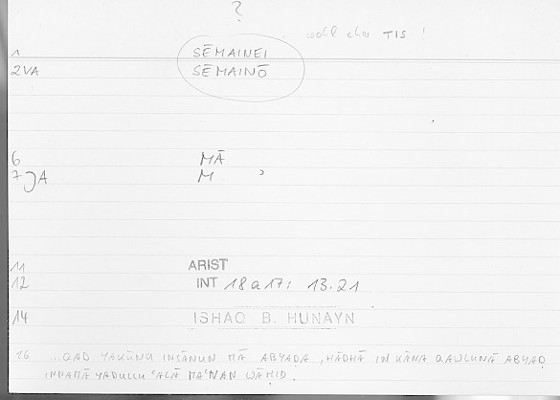 ?
wohl eher TIS !
1 SĒMAINEI
2VA SĒMAINŌ
6 MĀ
7 JA M ʾ
11 ARIST
12 INT 18 a 17; 13.21
14 ISHAQ B. HUNAYN
16 ...QAD YAKŪNU INSĀNUN MĀ ABYAḌA, HĀḎĀ IN KĀNA QAWLUNĀ ABYAḌ
INNAMĀ YADULLU ʿALĀ MAʿNAN WĀḤID.